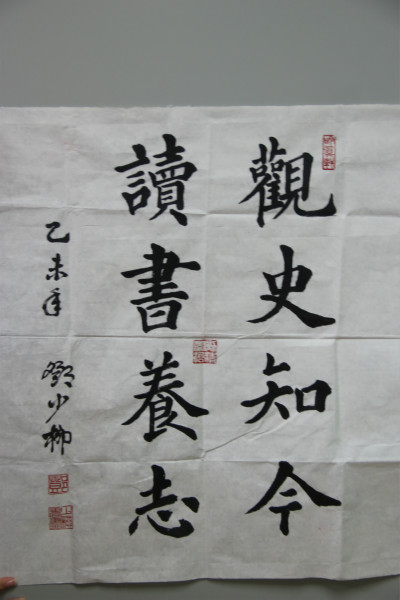 觀史知今
讀書養志
乙未年 鄧少柳